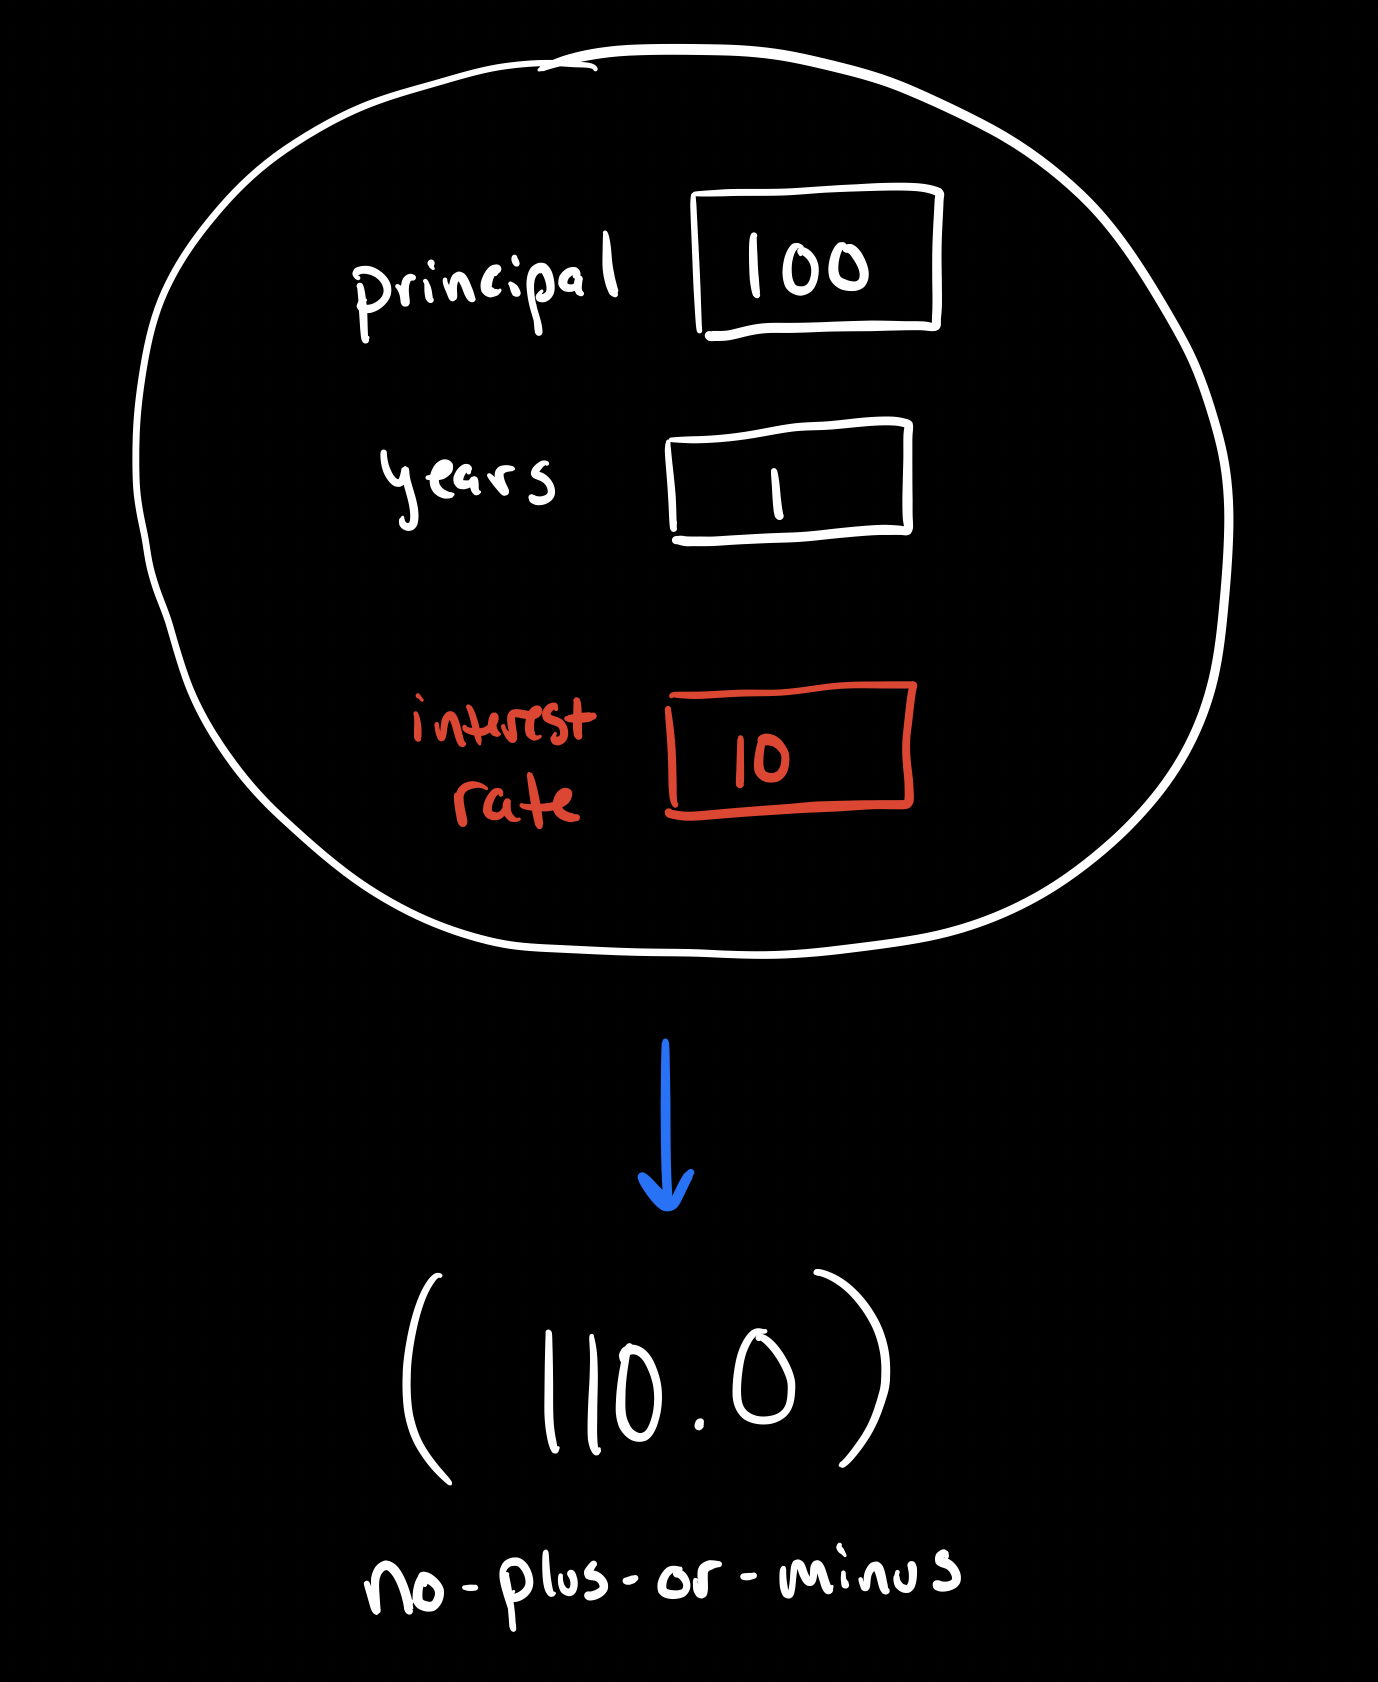 principal 100
years 1
interest
rate 10
(110.0)
no-plus-or-minus